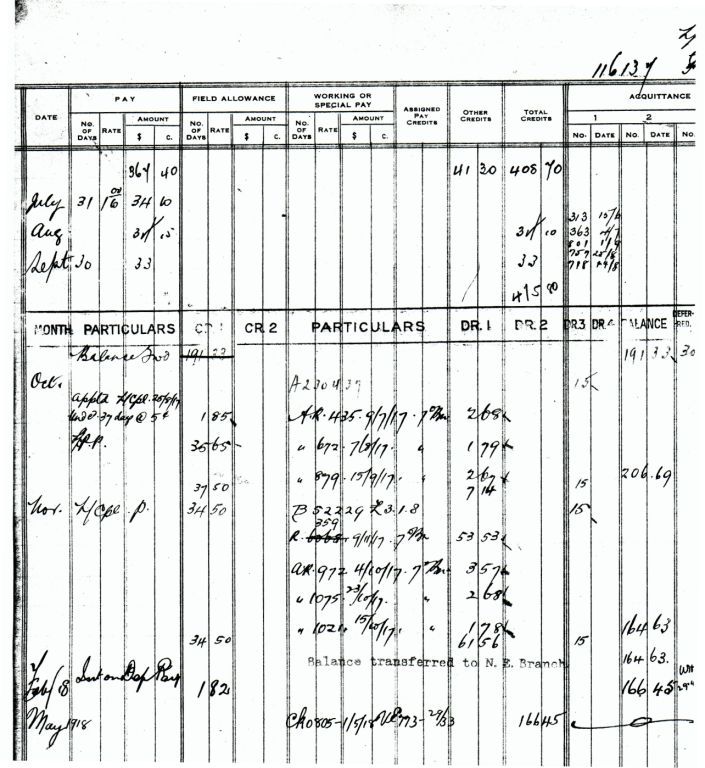 116137
ACQUITTANCE
DATE PAY FIELD ALLOWANCE WORKING OR SPECIAL PAY ASSIGNED PAY CREDITS OTHER CREDITS TOTAL CREDITS 1 2
NO. OF DAYS RATE AMOUNT $ C. NO. OF DAYS RATE AMOUNT $ C. NO. OF DAYS RATE AMOUNT $ C. NO. DATE NO. DATE NO.
367 40 41 30 408 70
July 31 34 10 313 15/6
Aug 363 4/7
801 1/9
Sept 30 33 33 757 25/8
MONTH PARTICULARS CR. 1 CR. 2 PARTICULARS DR. 1 DR. 2 DR. 3 DR. 4 BALANCE DEFER-RED.
Balance Fwd 191 33 191 33 30
Oct. A230439 15
Appt'd L/Cpl.
37 days @ 5¢ 1 85 A.R. 435. 9/7/17. 7 Bn 2 68
35 65 " 672. 7/8/17. " 1 79
" 879. 15/9/17. " 2 67 206.69
37 50 7 14 15
Nov. L/Cpl. P. 34 50 B 52229 £3.1.8 15
359
R. 9/11/17. 7 Bn 53 53
AR. 972 4/10/17. 7 Bn 3 57
" 1075. 23/10/17. " 2 68
" 1021. 15/10/17. " 1 78 164 63
34 50 61 56 15
Balance transferred to N. E. Branch 164 63.
Feb/18 Int on Def Pay 1 82 166 45
May 1918 Ch0805-1/5/18 29/33 166 45